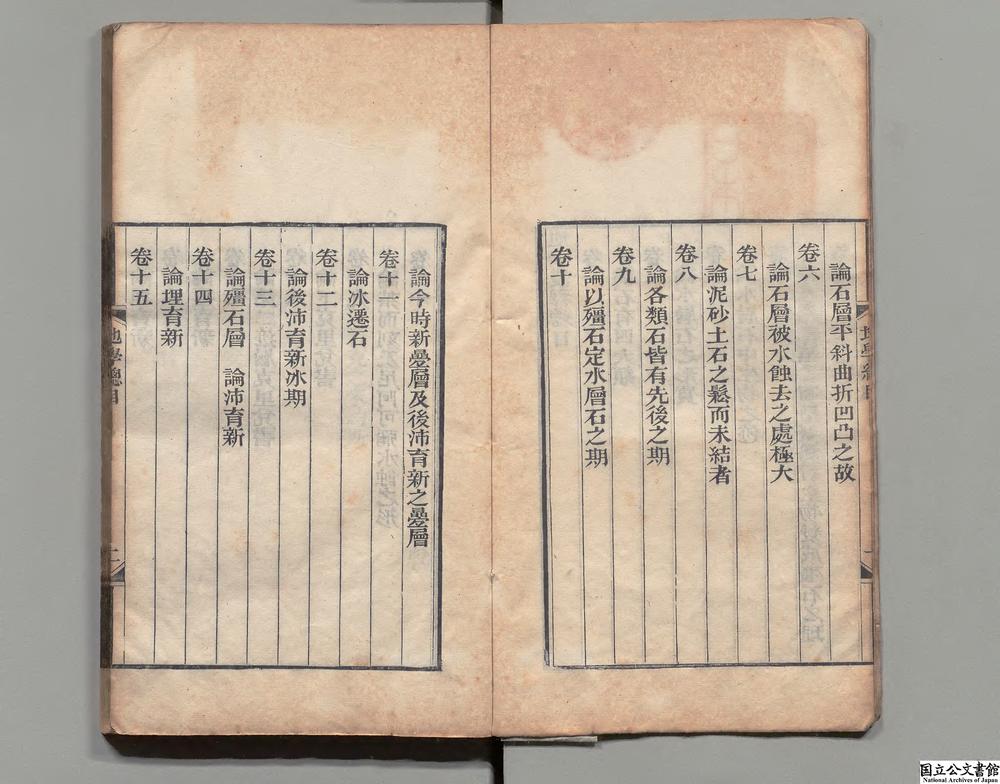 論石層平斜曲折凹凸之故
卷六
論石層被水蝕去之處極大
卷七
論泥砂土石之鬆而未結者
卷八
論各類石皆有先後之期
卷九
論以殭石定水層石之期
卷十
論今時新疊層及後沛育新之疊層
卷十一
論冰遷石
卷十二
論後沛育新冰期
卷十三
論殭石層 論沛育新
卷十四
論埋育新
卷十五
地學總目
二
国立公文書館
National Archives of Japan